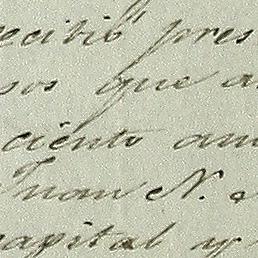 recibió pres
sos que a
ciento am
Juan N.
capital y